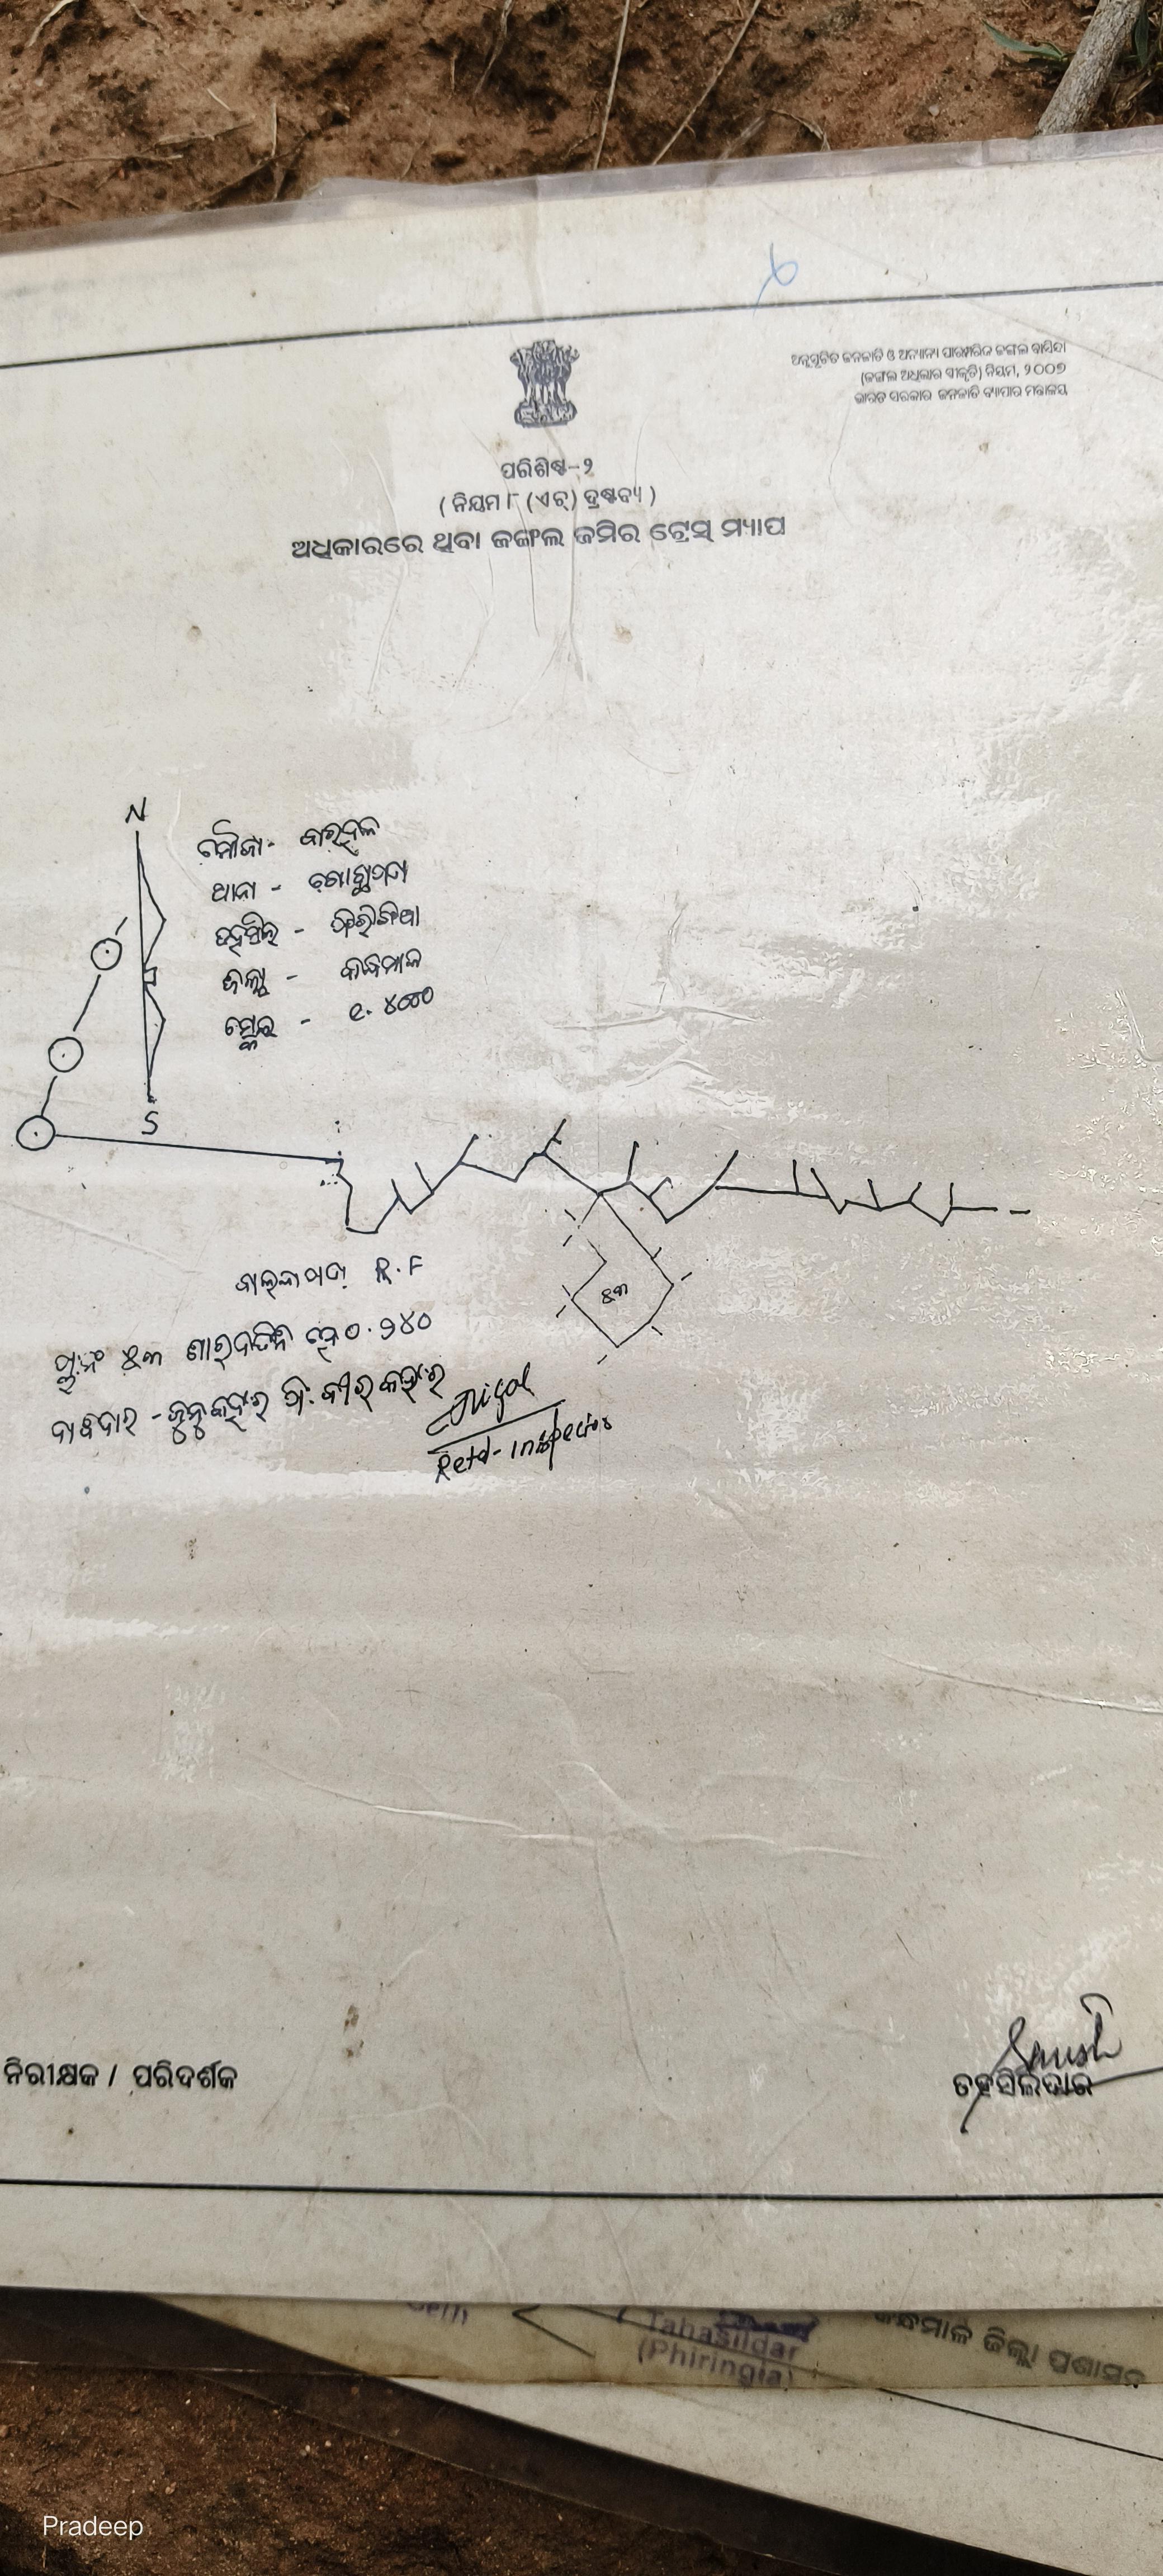 ଅନୁସୂଚିତ ଜନଜାତି ଓ ଅନ୍ୟାନ୍ୟ ପାରମ୍ପରିକ ଜଙ୍ଗଲ ବାସିନ୍ଦା
(ଜଙ୍ଗଲ ଅଧିକାର ସ୍ୱୀକୃତି) ନିୟମ, ୨୦୦୭
ଭାରତ ସରକାର ଜନଜାତି ବ୍ୟାପାର ମନ୍ତ୍ରାଳୟ
ପରିଶିଷ୍ଟ-୨
( ନିୟମ ୮ (ଏଚ୍) ଦ୍ରଷ୍ଟବ୍ୟ )
ଅଧିକାରରେ ଥିବା ଜଙ୍ଗଲ ଜମିର ଟ୍ରେସ୍ ମ୍ୟାପ
N
ମୌଜା-
ଥାନା -
ତହସିଲ - ଫିରିଙ୍ଗିଆ
ଜିଲ୍ଲା - କନ୍ଧମାଳ
ସ୍କେଲ - ୧. ୪୦୦୦
S
R.F
୫୩
ପ୍ଲଟ ନଂ ୫୩ ହେ ୦.୨୪୦
ଦାବିଦାର -
Retd- Inspector
ନିରୀକ୍ଷକ / ପରିଦର୍ଶକ
ତହସିଲଦାର
Tahasildar
(Phiringia)
କନ୍ଧମାଳ ଜିଲ୍ଲା ପ୍ରଶାସନ
Pradeep